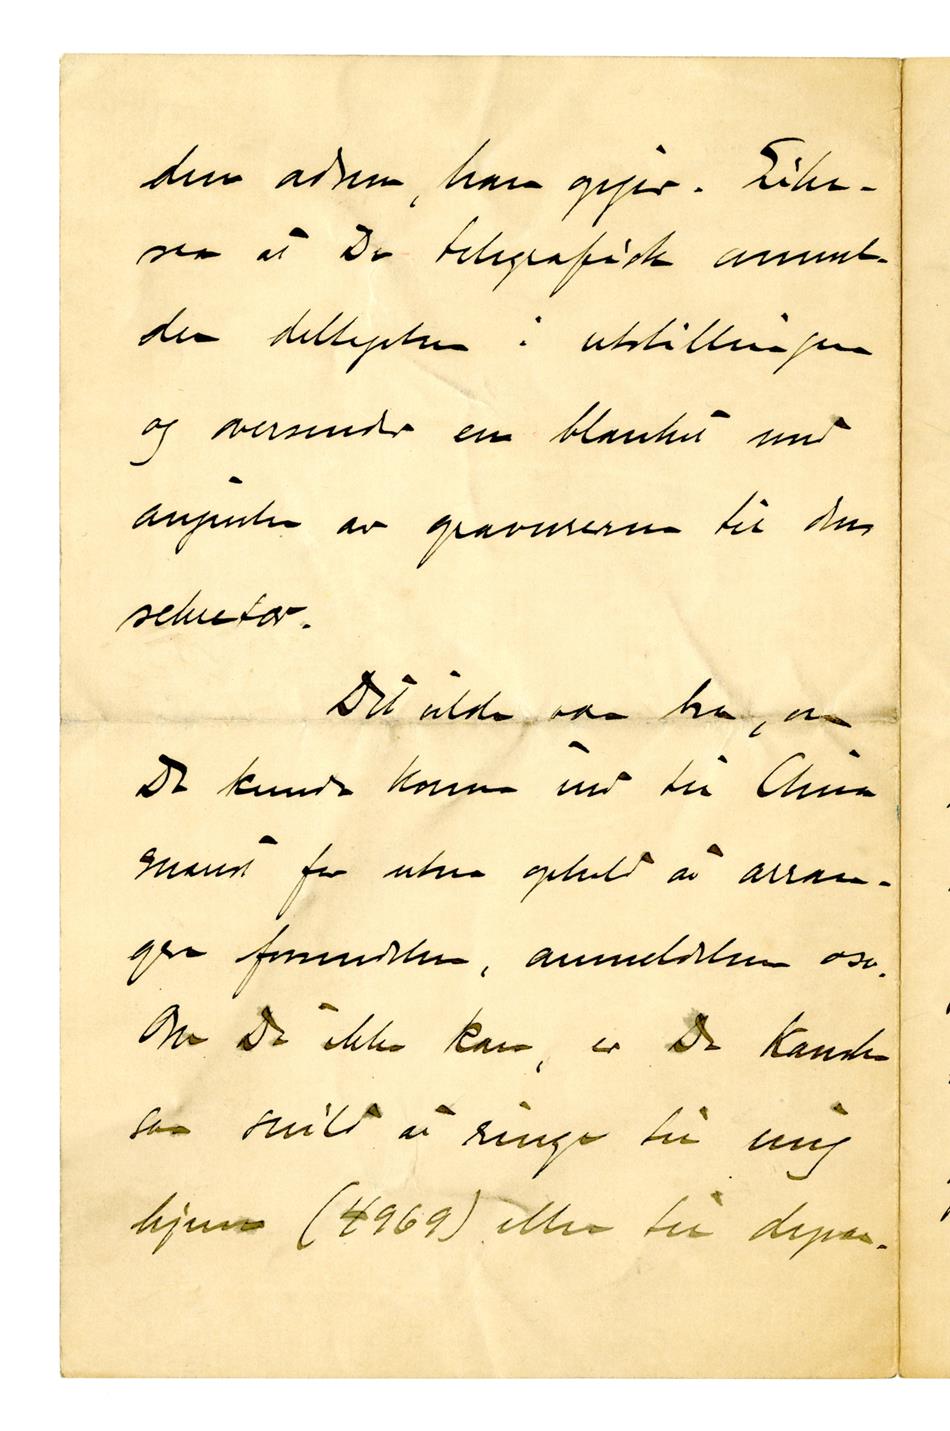 den adresse, han opgir. Like-
saa at De telegrafisk anmel-
der deltagelsen i utstillingen
og oversender en blanket med
angivelse av gravurerne til den
sekretær.
Det vilde være bra, om
De kunde komme ind til Chria
snarest for uten ophold at arran-
gere forsendelsen, anmeldelsen osv.
Om De ikke kan, er De kanske
saa snild at ringe til mig
hjem (4969) eller til depar-